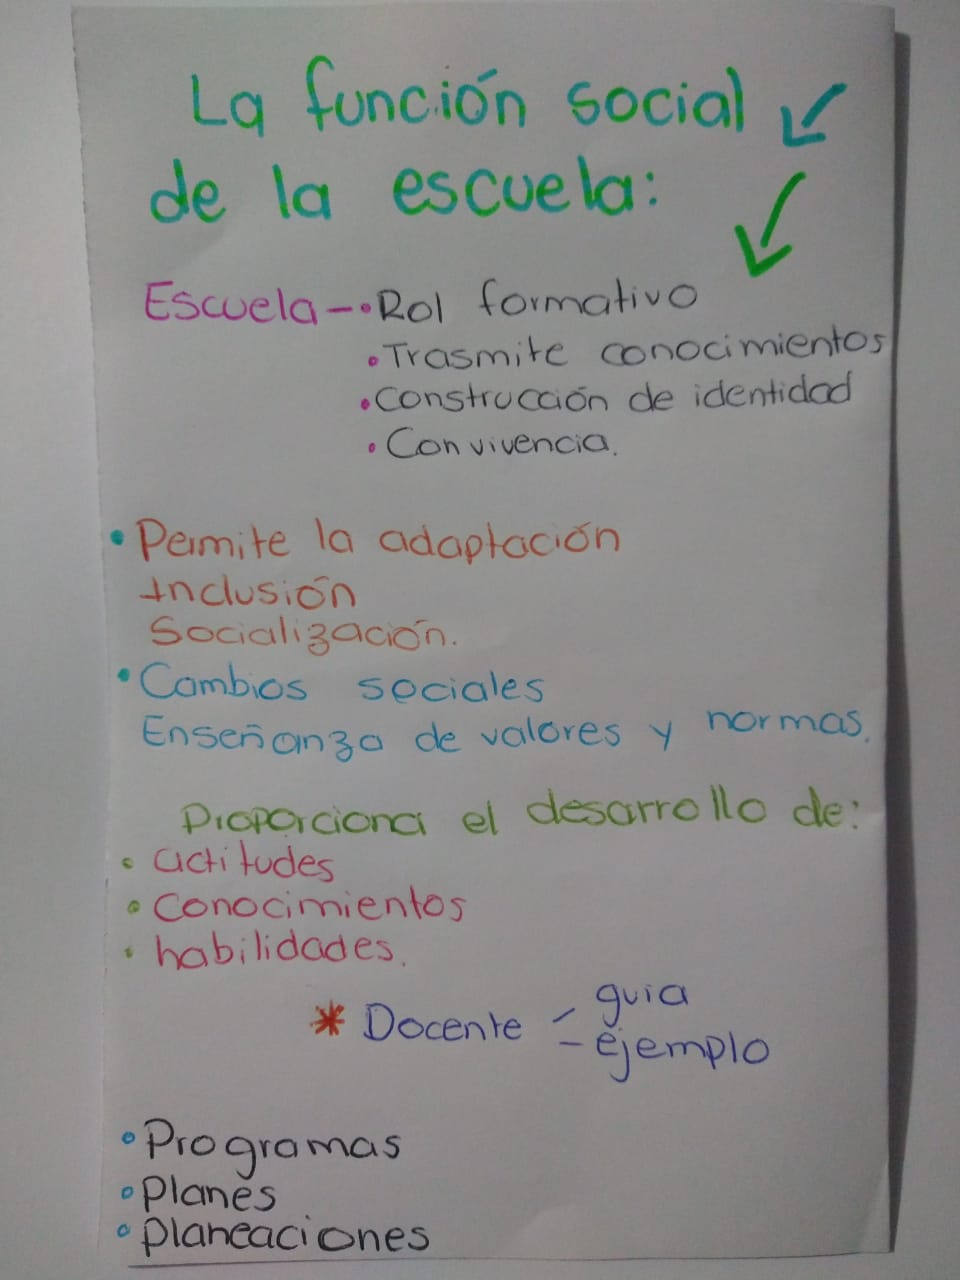 La función social
de la escuela:
Escuela-•Rol formativo
•Trasmite conocimientos
•Construcción de identidad
•Convivencia.
•Permite la adaptación
Inclusión
Socialización.
•Cambios sociales
Enseñanza de valores y normas.
Proporciona el desarrollo de:
•actitudes
•conocimientos
•habilidades.
*Docente - guia
- ejemplo
•Programas
•Planes
•planeaciones